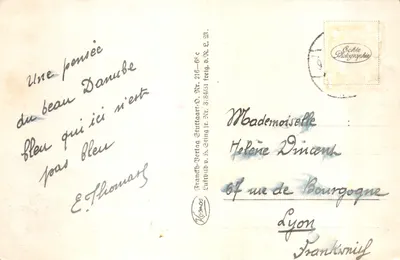 Une pensée
du beau Danube
bleu qui ici n'est
pas bleu
E. Thomas
Franckh-Verlag Stuttgart-O. Nr. 216-68c
Kosmos
Echte
Photographie
Mademoiselle
Hélène Vincent
67 rue de Bourgogne
Lyon
Frankreich